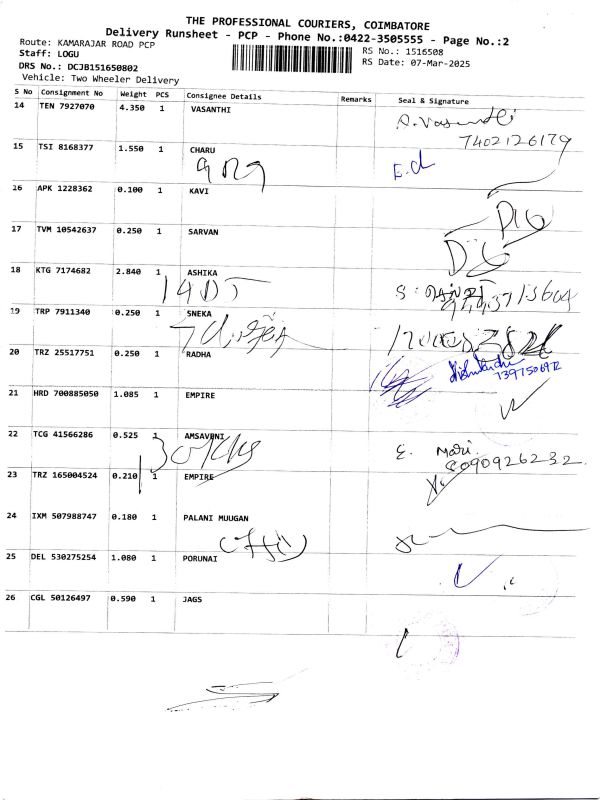 THE PROFESSIONAL COURIERS, COIMBATORE
Delivery Runsheet - PCP - Phone No.:0422-3505555 - Page No.:2
Route: KAMARAJAR ROAD PCP
RS No.: 1516508
Staff: LOGU
RS Date: 07-Mar-2025
DRS No.: DCJB151650802
Vehicle: Two Wheeler Delivery
S No Consignment No Weight PCS Consignee Details Remarks Seal & Signature
14 TEN 7927070 4.350 1 VASANTHI
7402126179
15 TSI 8168377 1.550 1 CHARU
16 APK 1228362 0.100 1 KAVI
17 TVM 10542637 0.250 1 SARVAN
18 KTG 7174682 2.840 1 ASHIKA
19 TRP 7911340 0.250 1 SNEKA
20 TRZ 25517751 0.250 1 RADHA
21 HRD 700885050 1.085 1 EMPIRE
22 TCG 41566286 0.525 1 AMSAVENI
E. Mari
8090926232
23 TRZ 165004524 0.210 1 EMPIRE
24 IXM 507988747 0.180 1 PALANI MUUGAN
25 DEL 530275254 1.080 1 PORUNAI
26 CGL 50126497 0.590 1 JAGS